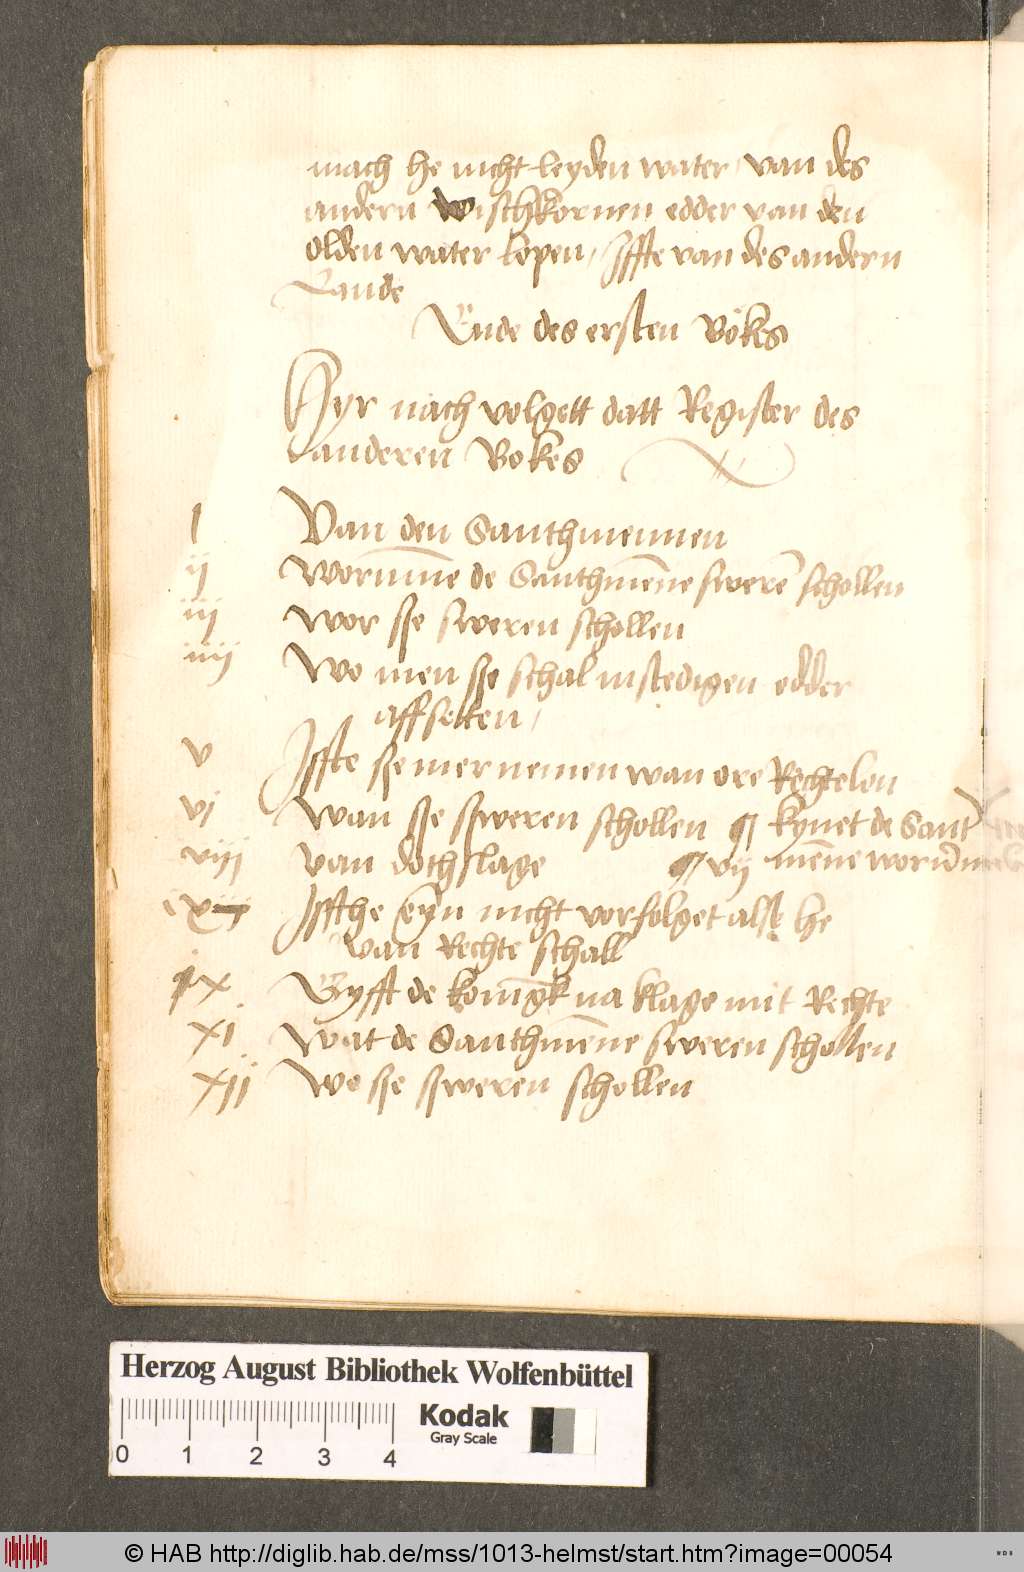 mach he nicht leyden water / van des
andern wischkornen edder van den
olden water lopen / Iffte van des andern
Lande
Ende des ersten Bökes
Hyr nach volgett datt Register des
anderen Bokes
I Van den Santhmennen
ij Worum̄e de Santhmēne swerē schollen
iij Wor sse sweren schollen
iiij Wo men sse schal instedigen edder
affsetten /
v Iffte sse mer nemen wan ore Rechte lon
vj Wan sse ssweren schollen ¶ kynet de Sant
viij van dothslage ¶ vij mēne
ix Iffthe eyn nicht vorfolget alse he
van Rechte schall
x Gyfft de konīgk na klage mit Rechte
xi Wat de Santhmēne sweren schollen
xij Wo sse ssweren schollen
Herzog August Bibliothek Wolfenbüttel
0 1 2 3 4
Kodak
Gray Scale
© HAB http://diglib.hab.de/mss/1013-helmst/start.htm?image=00054